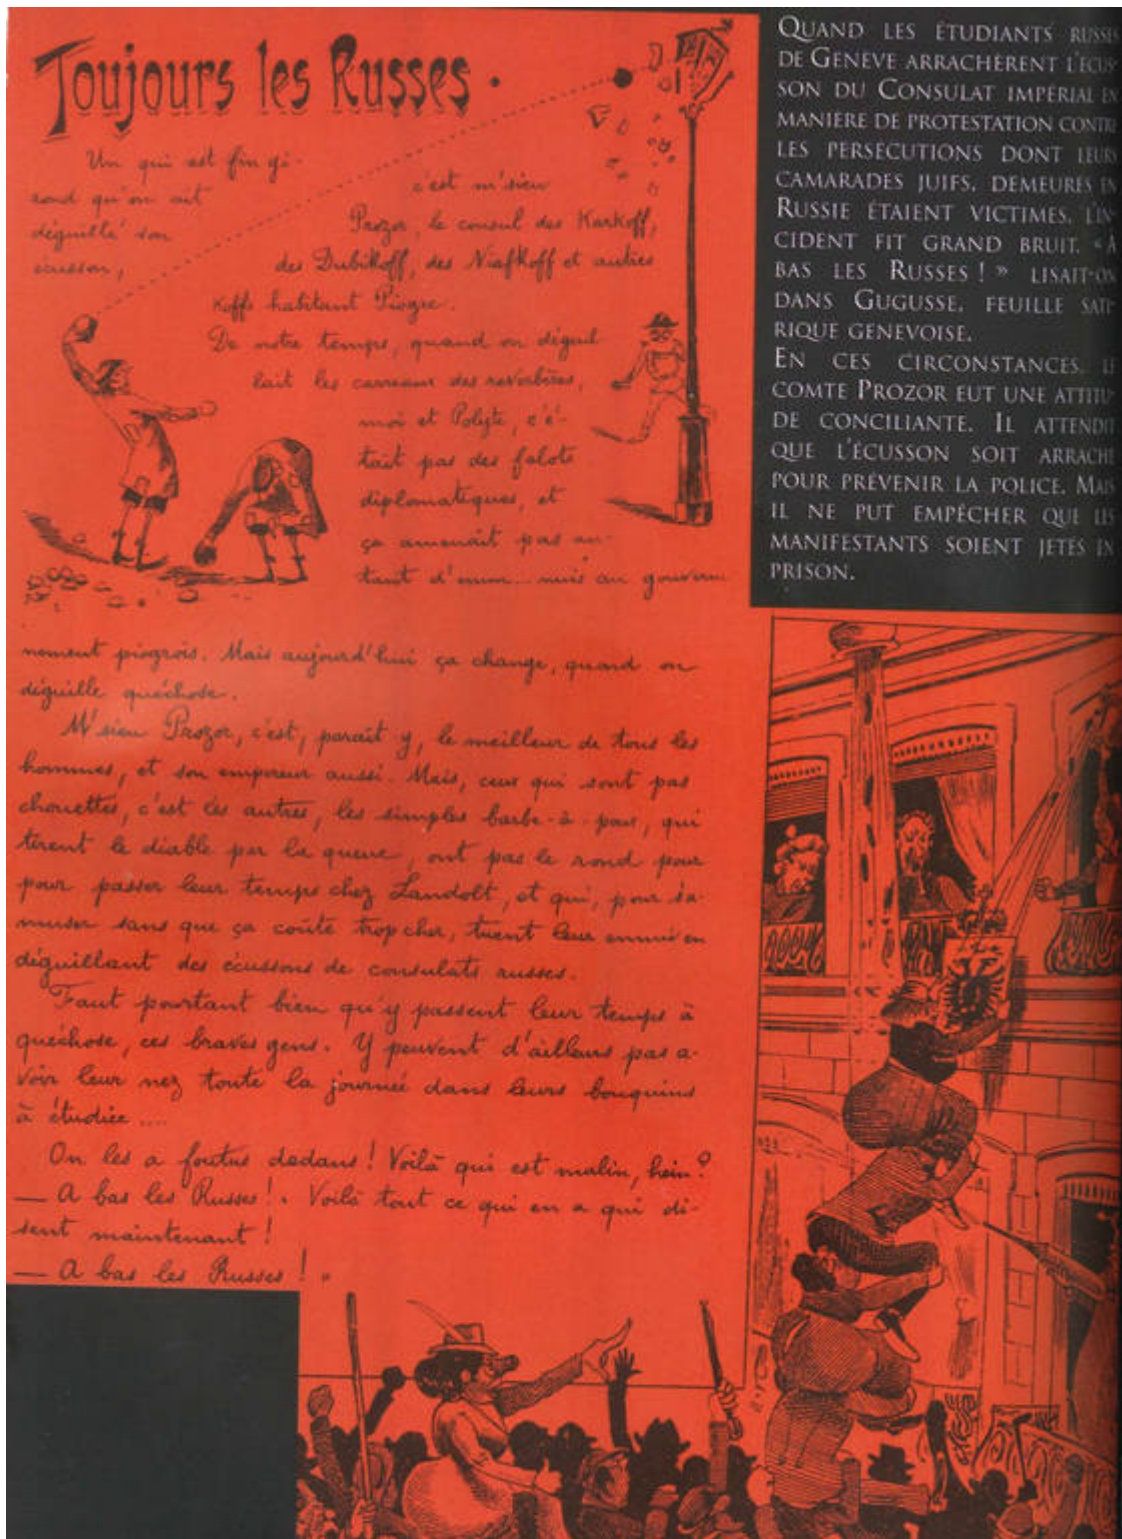 Toujours les Russes.
Un qui est fin gi-
rond qu'on ait
déguillé son
écusson,
c'est m'sieu
Prozor, le consul des Karkoff,
des Dubikoff, des Niafkoff et autres
koffs habitant Piogre.
De notre temps, quand on déguil
lait les carreaux des réverbères,
moi et Polyte, c'é-
tait pas des falots
diplomatiques, et
ça amenait pas au-
tant d'ennui au gouverne
nement piogrois. Mais aujourd'hui ça change, quand on
déguille quéchose.
M'sieu Prozor, c'est, paraît y, le meilleur de tous les
hommes, et son empereur aussi. Mais, ceux qui sont pas
chouettes, c'est les autres, les simples barbe-à-poux, qui
tirent le diable par la queue, ont pas le rond pour
pour passer leur temps chez Landolt, et qui, pour s'a-
muser sans que ça coûte trop cher, tuent leur ennui en
déguillant des écussons de consulats russes.
Faut pourtant bien qu'y passent leur temps à
quéchose, ces braves gens. Y peuvent d'ailleurs pas a-
voir leur nez toute la journée dans leurs bouquins
à étudier....
On les a foutus dedans! Voilà qui est malin, hein?
— A bas les Russes! . Voilà tout ce qui en a qui di-
sent maintenant!
— A bas les Russes! »
QUAND LES ÉTUDIANTS RUSSES
DE GENÈVE ARRACHÈRENT L'ÉCUS-
SON DU CONSULAT IMPÉRIAL EN
MANIÈRE DE PROTESTATION CONTRE
LES PERSÉCUTIONS DONT LEURS
CAMARADES JUIFS, DEMEURÉS EN
RUSSIE ÉTAIENT VICTIMES, L'IN-
CIDENT FIT GRAND BRUIT. « À
BAS LES RUSSES ! » LISAIT-ON
DANS GUGUSSE, FEUILLE SATI-
RIQUE GENEVOISE.
EN CES CIRCONSTANCES, LE
COMTE PROZOR EUT UNE ATTITU-
DE CONCILIANTE. IL ATTENDIT
QUE L'ÉCUSSON SOIT ARRACHÉ
POUR PRÉVENIR LA POLICE. MAIS
IL NE PUT EMPÊCHER QUE LES
MANIFESTANTS SOIENT JETÉS EN
PRISON.